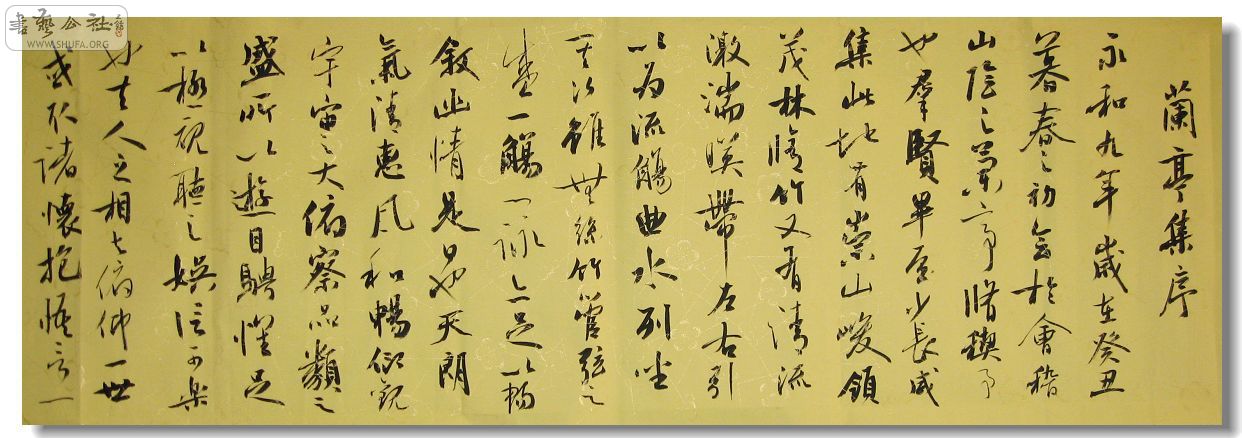 蘭亭集序
永和九年歲在癸丑
暮春之初會於會稽
山陰之蘭亭脩稧事
也羣賢畢至少長咸
集此地有崇山峻領
茂林脩竹又有清流
激湍暎帶左右引
以為流觴曲水列坐
其次雖無絲竹管弦之
盛一觴一詠亦足以暢
敘幽情是日也天朗
氣清惠風和暢仰觀
宇宙之大俯察品類之
盛所以遊目騁懷足
以極視聽之娛信可樂
也夫人之相與俯仰一世
或取諸懷抱悟言一
書藝公社
WWW.SHUFA.ORG